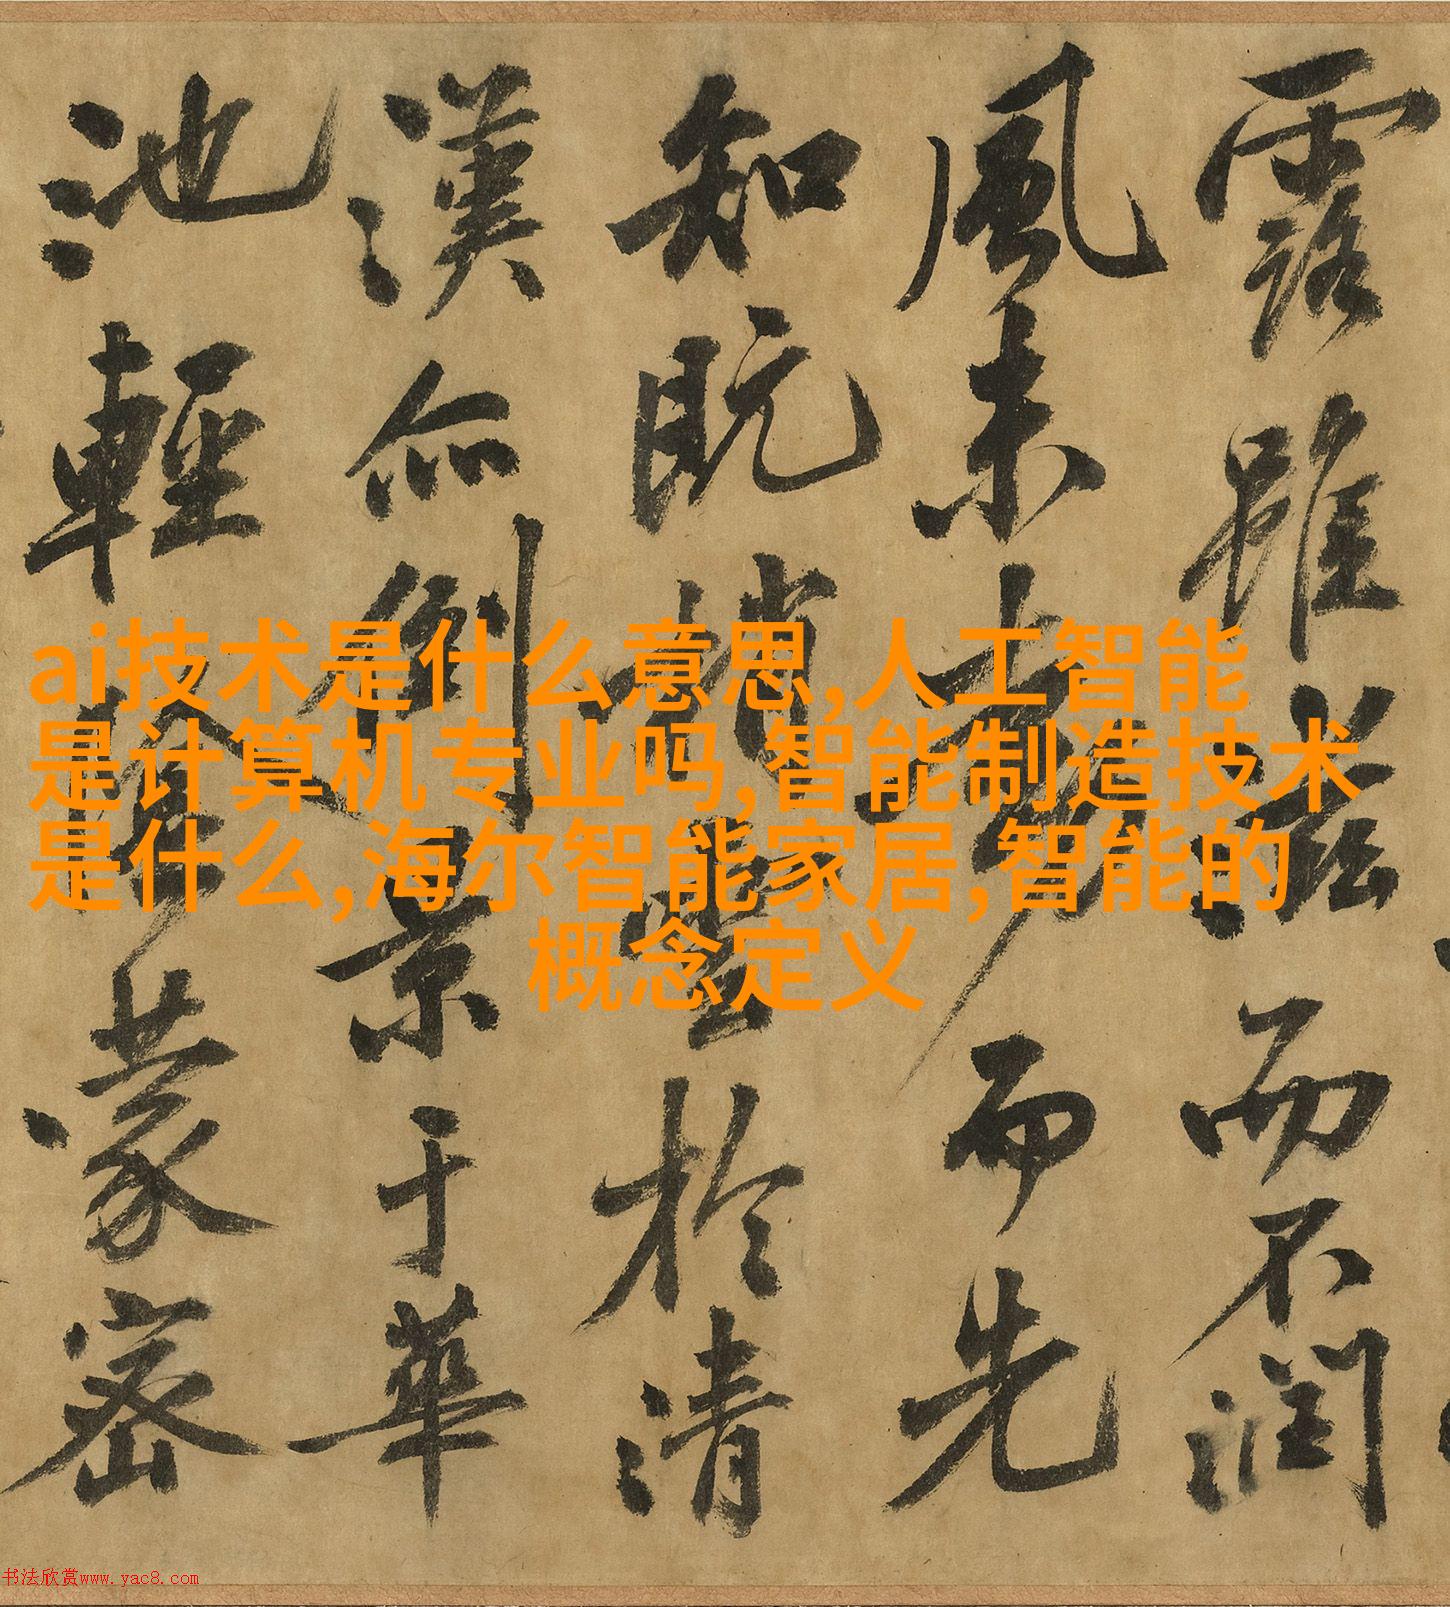 露雖滋而不潤
風未動而先
知既梢雲於清
漢亦倒景于華
池輕陰蒙密
ai技术是什么意思,人工智能
是计算机专业吗,智能制造技术
是什么,海尔智能家居,智能的
概念定义
书法欣赏www.yac8.com